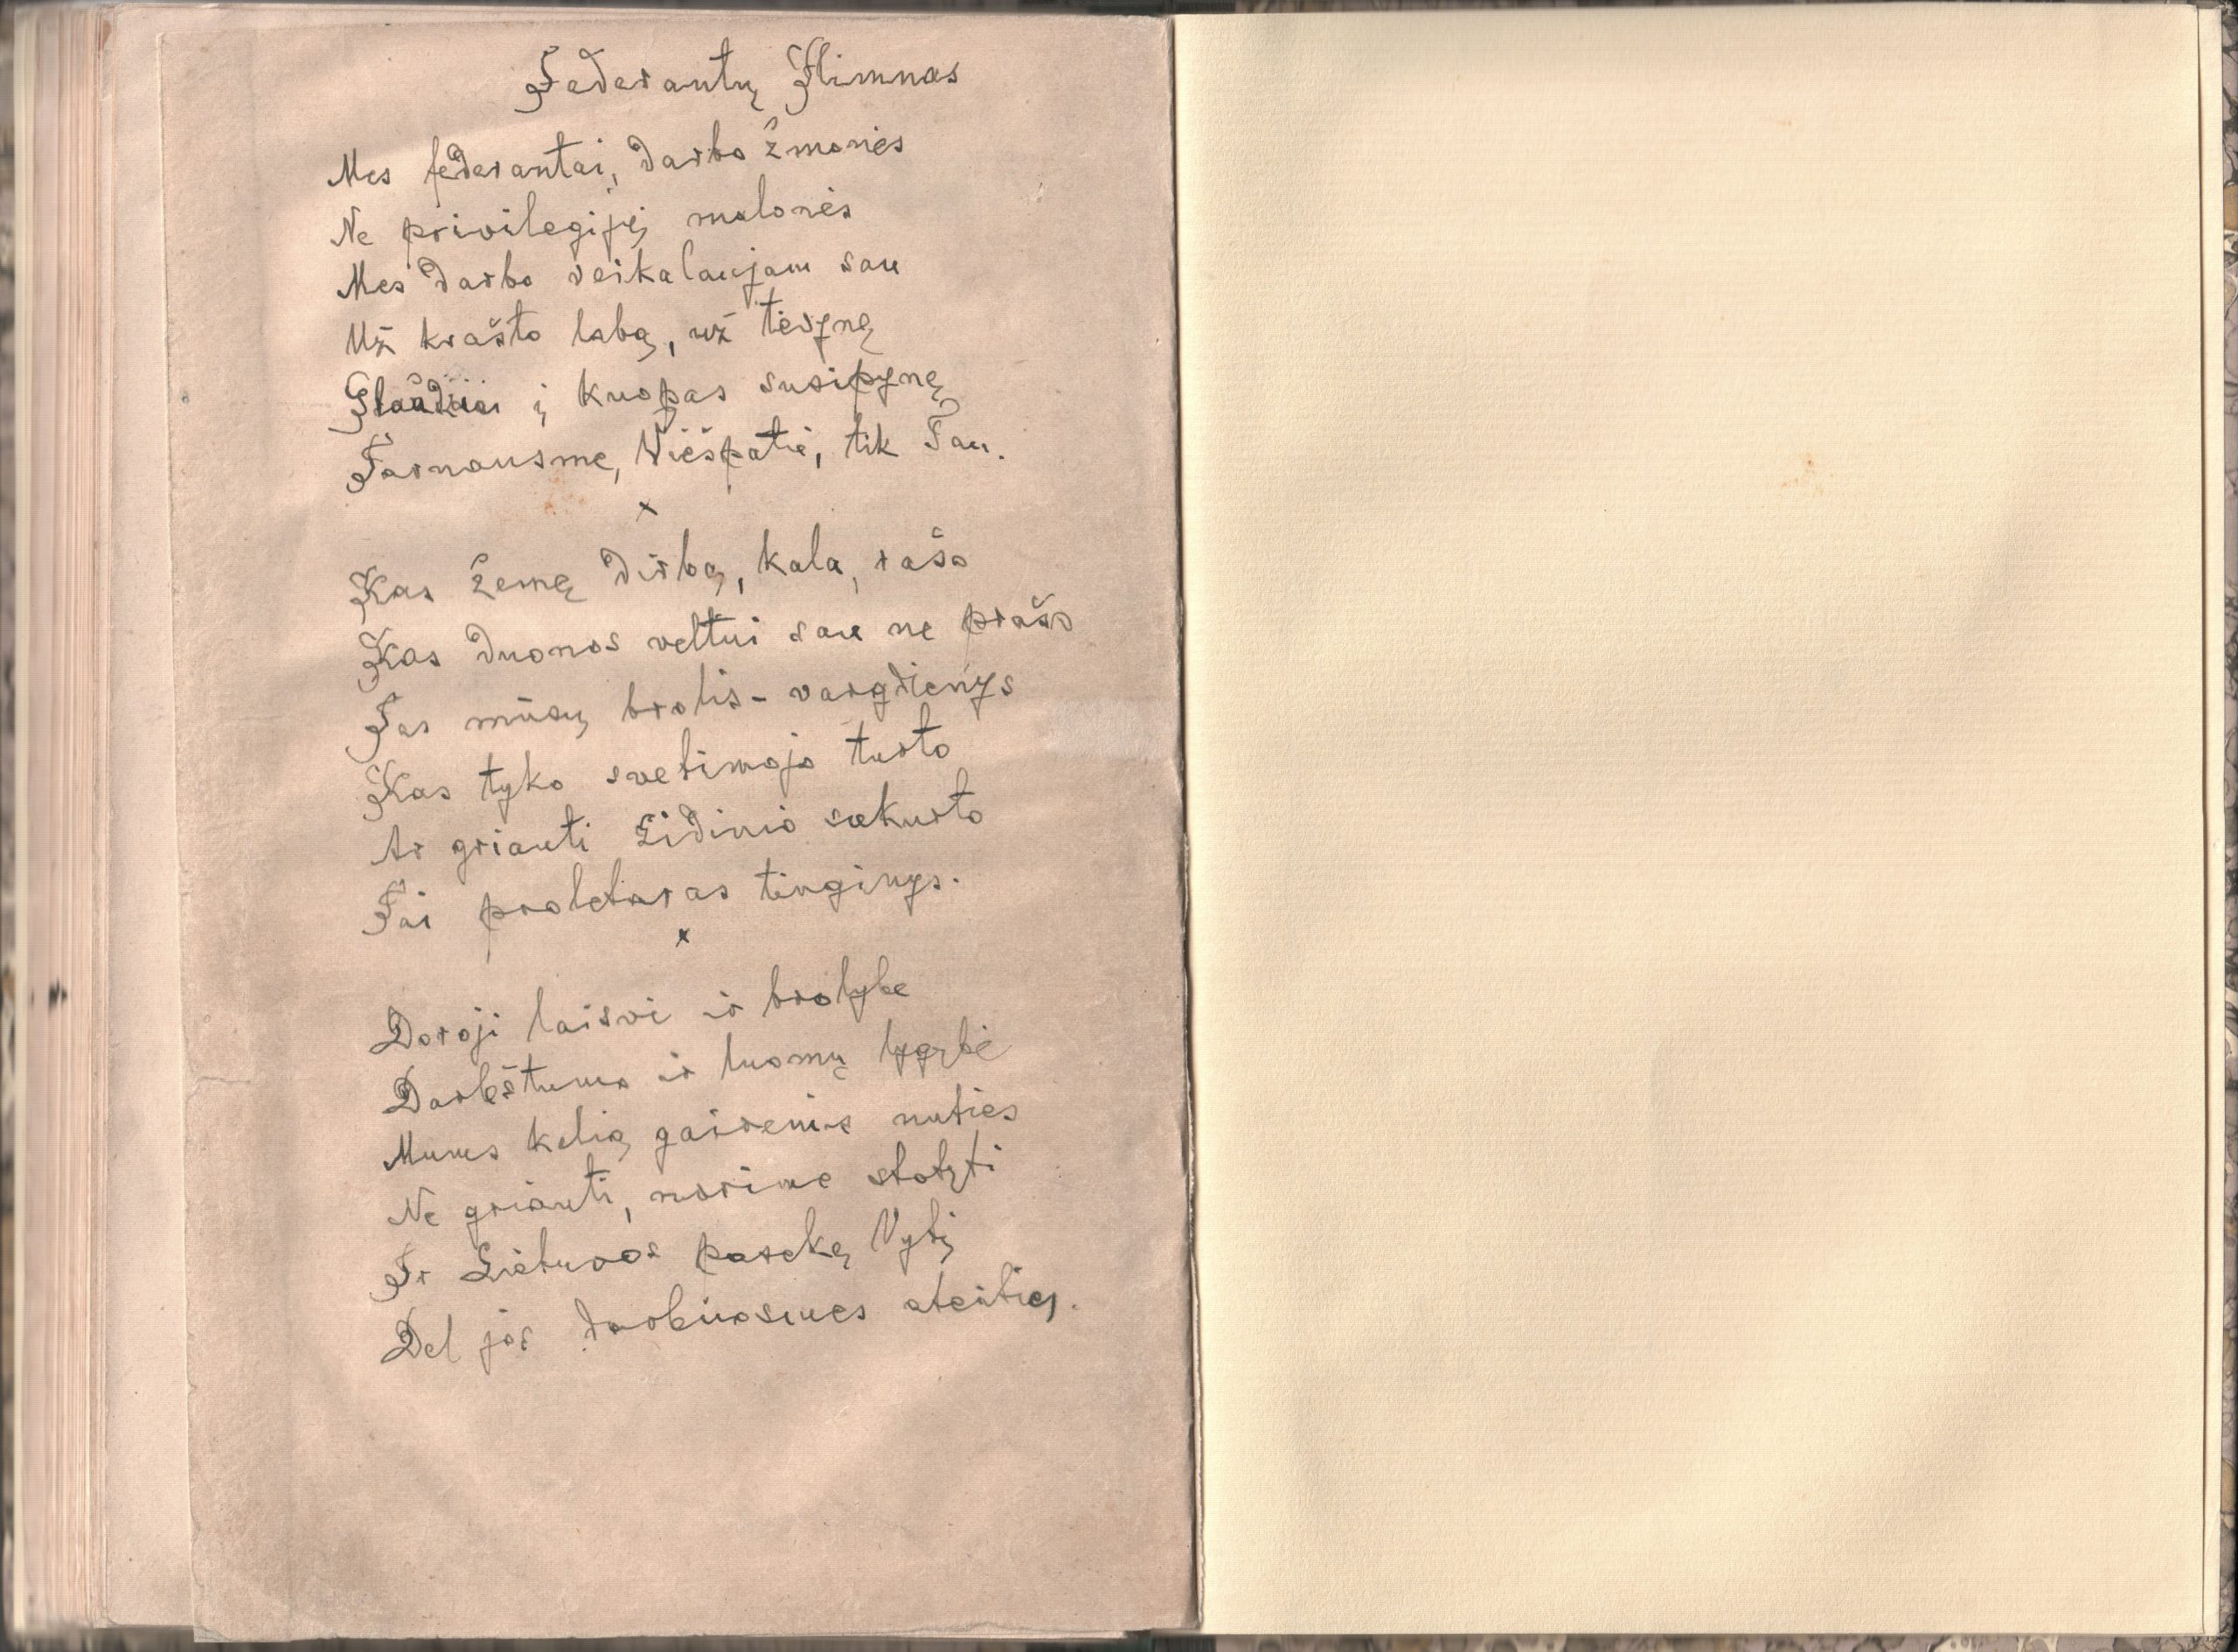 Federantų Himnas
Mes federantai, darbo žmonės
Ne privilegijų malonės
Mes darbo reikalaujam sau
Už krašto labą, už tėvynę
Glaudžiai į kuopas susipynę
Tarnausme, Viešpatie, tik Tau.
x
Kas žemę dirba, kala, rašo
Kas duonos veltui sau ne prašo
Tas mūsų brolis - vargdienys
Kas tyko svetimojo turto
Ar griauti židinio sukurto
Tai proletaras tinginys.
x
Doroji laisvė ir brolybe
Darbštumo ir luomų lygybė
Mums kelią gairėmis nuties
Ne griauti, norime statyti
Ir Lietuvos pasekę Vytį
Del jos darbuosmės ateities.